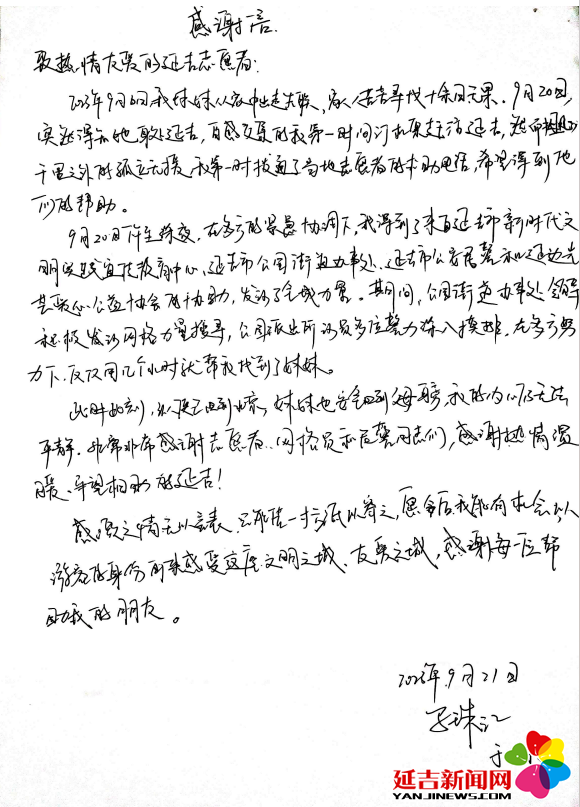 感谢信
致热情友爱的延吉志愿者:
2023年9月6日我妹妹从家中出走失联,家人苦苦寻找十余日无果。9月20日,
突然得知她身处延吉,百感交集的我第一时间订机票赶往延吉,然而
千里之外的孤立无援,我第一时拨通了当地志愿者的求助电话,希望得到他
们的帮助。
9月20日下午至深夜,在多方的紧急协调下,我得到了来自延吉市新时代文
明实践宣传教育中心、延吉市公园街道办事处、延吉市公安民警和延边先
益爱心公益协会的协助,发动了全城力量。其间,公园街道办事处领导
积极发动网格力量搜寻,公园派出所动员多位警力深入摸排,在多方努
力下,仅仅用几个小时就帮我找到了妹妹。
此时此刻,我已回到家,妹妹也安全回到母亲,我的内心仍无法
平静。非常非常感谢志愿者、网格员和民警同志们,感谢热情温
暖、守望相助的延吉!
感激之情无以言表,只能借一封信以寄之,愿今后我能有机会以
游客的身份再来感受这座文明之城、友爱之城,感谢每一位帮
助我的朋友。
2023年9月21日
于
延吉新闻网
WWW.YANJINEWS.COM